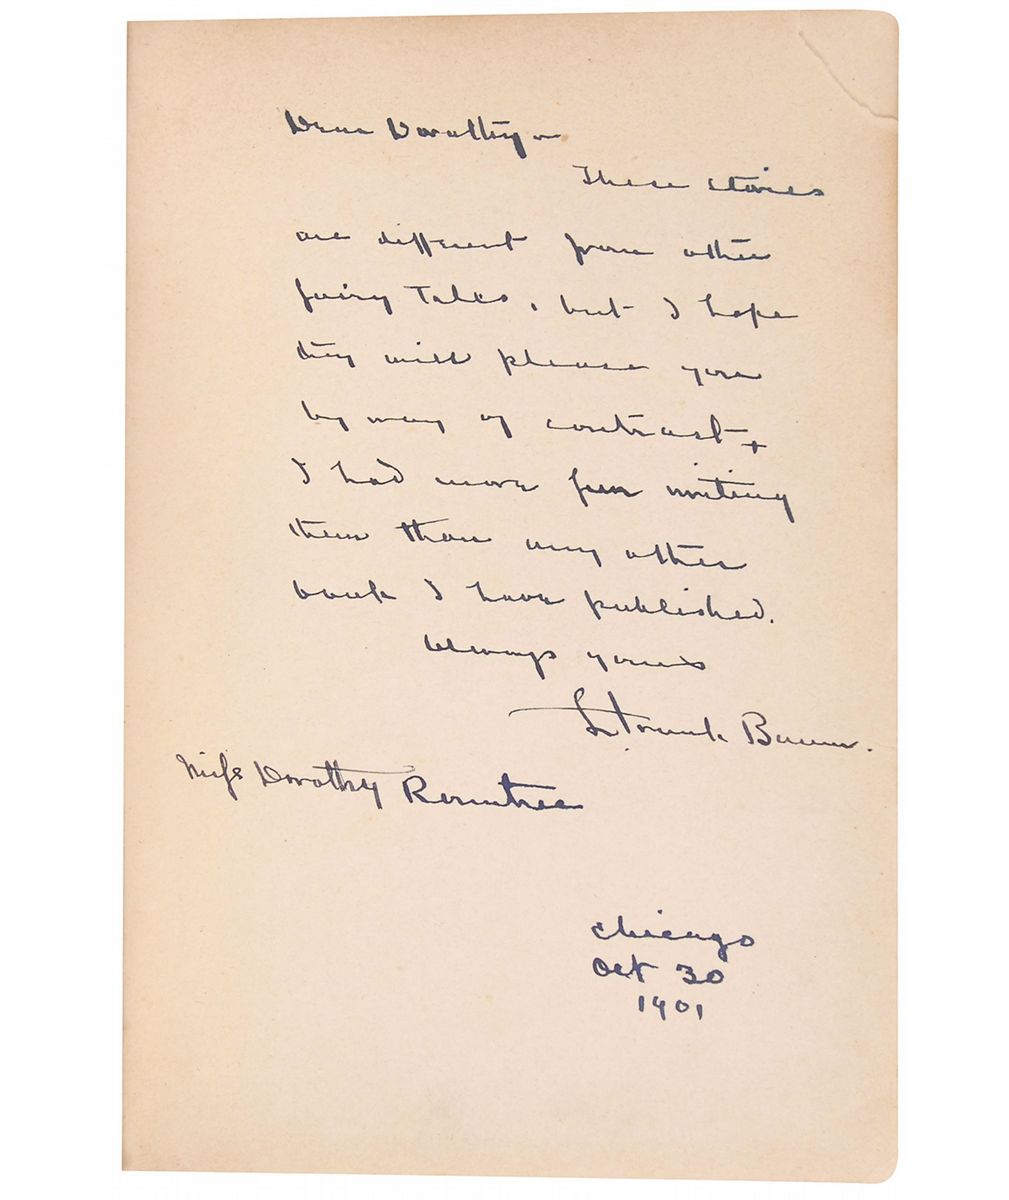 Dear Dorothy -
These stories
are different from other
fairy tales, but I hope
they will please you
by way of contrast +
I had more fun writing
them than any other
book I have published.
Always yours
L. Frank Baum.
Miss Dorothy Rountree
Chicago
Oct 30
1901